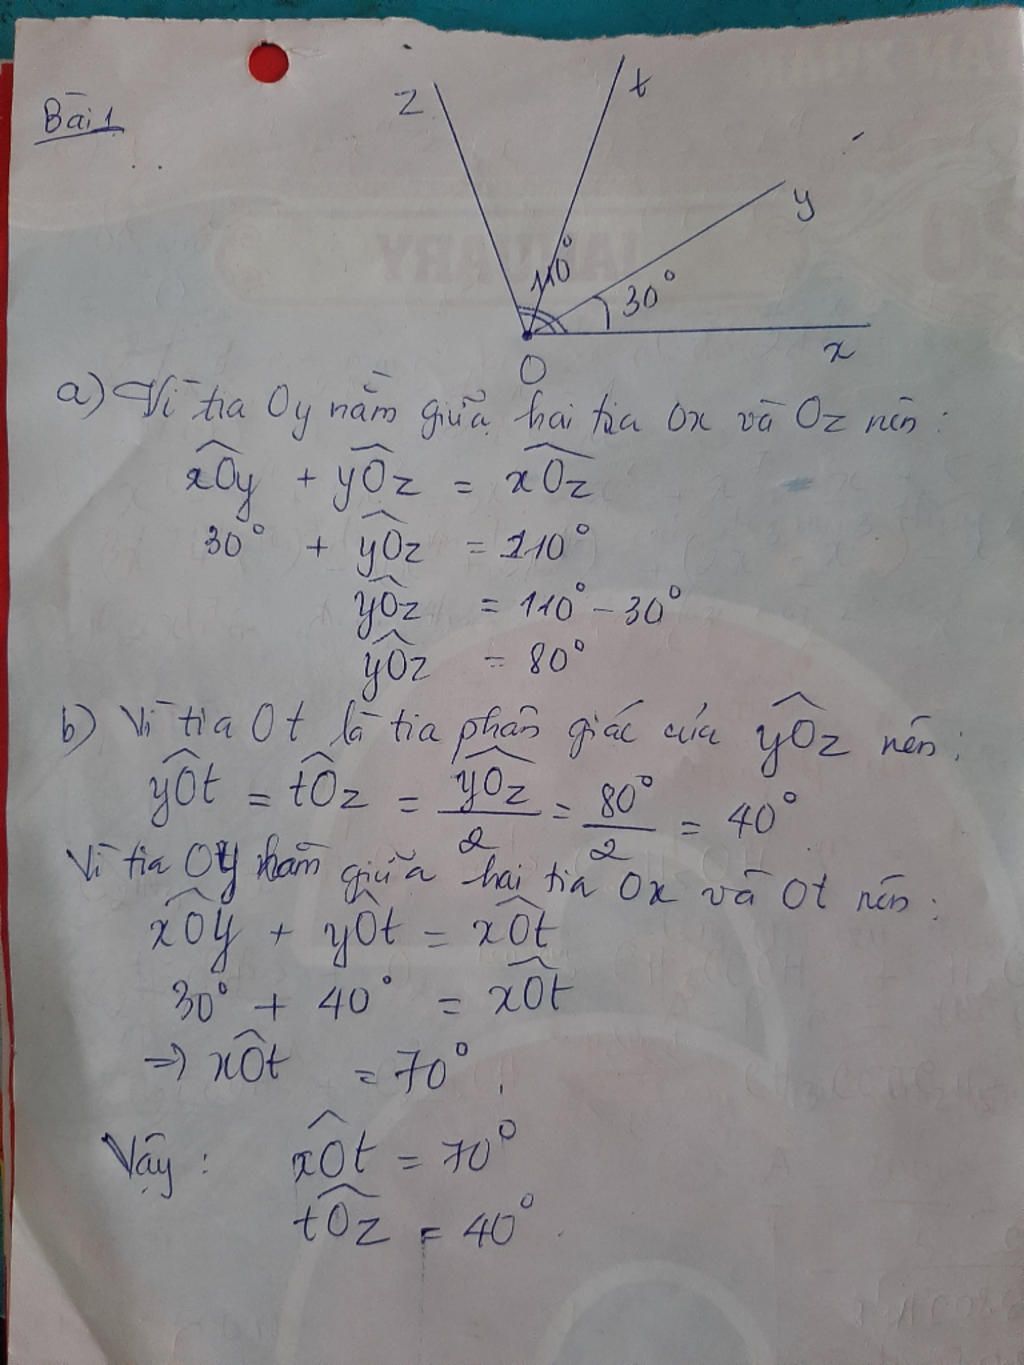 Bài 1
z
t
y
110°
30°
x
O
a) Vì tia Oy nằm giữa hai tia Ox và Oz nên:
xÔy + yÔz = xÔz
30° + yÔz = 110°
yÔz = 110° - 30°
yÔz = 80°
b) Vì tia Ot là tia phân giác của yÔz nên:
yÔt = tÔz = yÔz/2 = 80°/2 = 40°
Vì tia Oy nằm giữa hai tia Ox và Ot nên:
xÔy + yÔt = xÔt
30° + 40° = xÔt
=> xÔt = 70°.
Vậy: xÔt = 70°
tÔz = 40°.